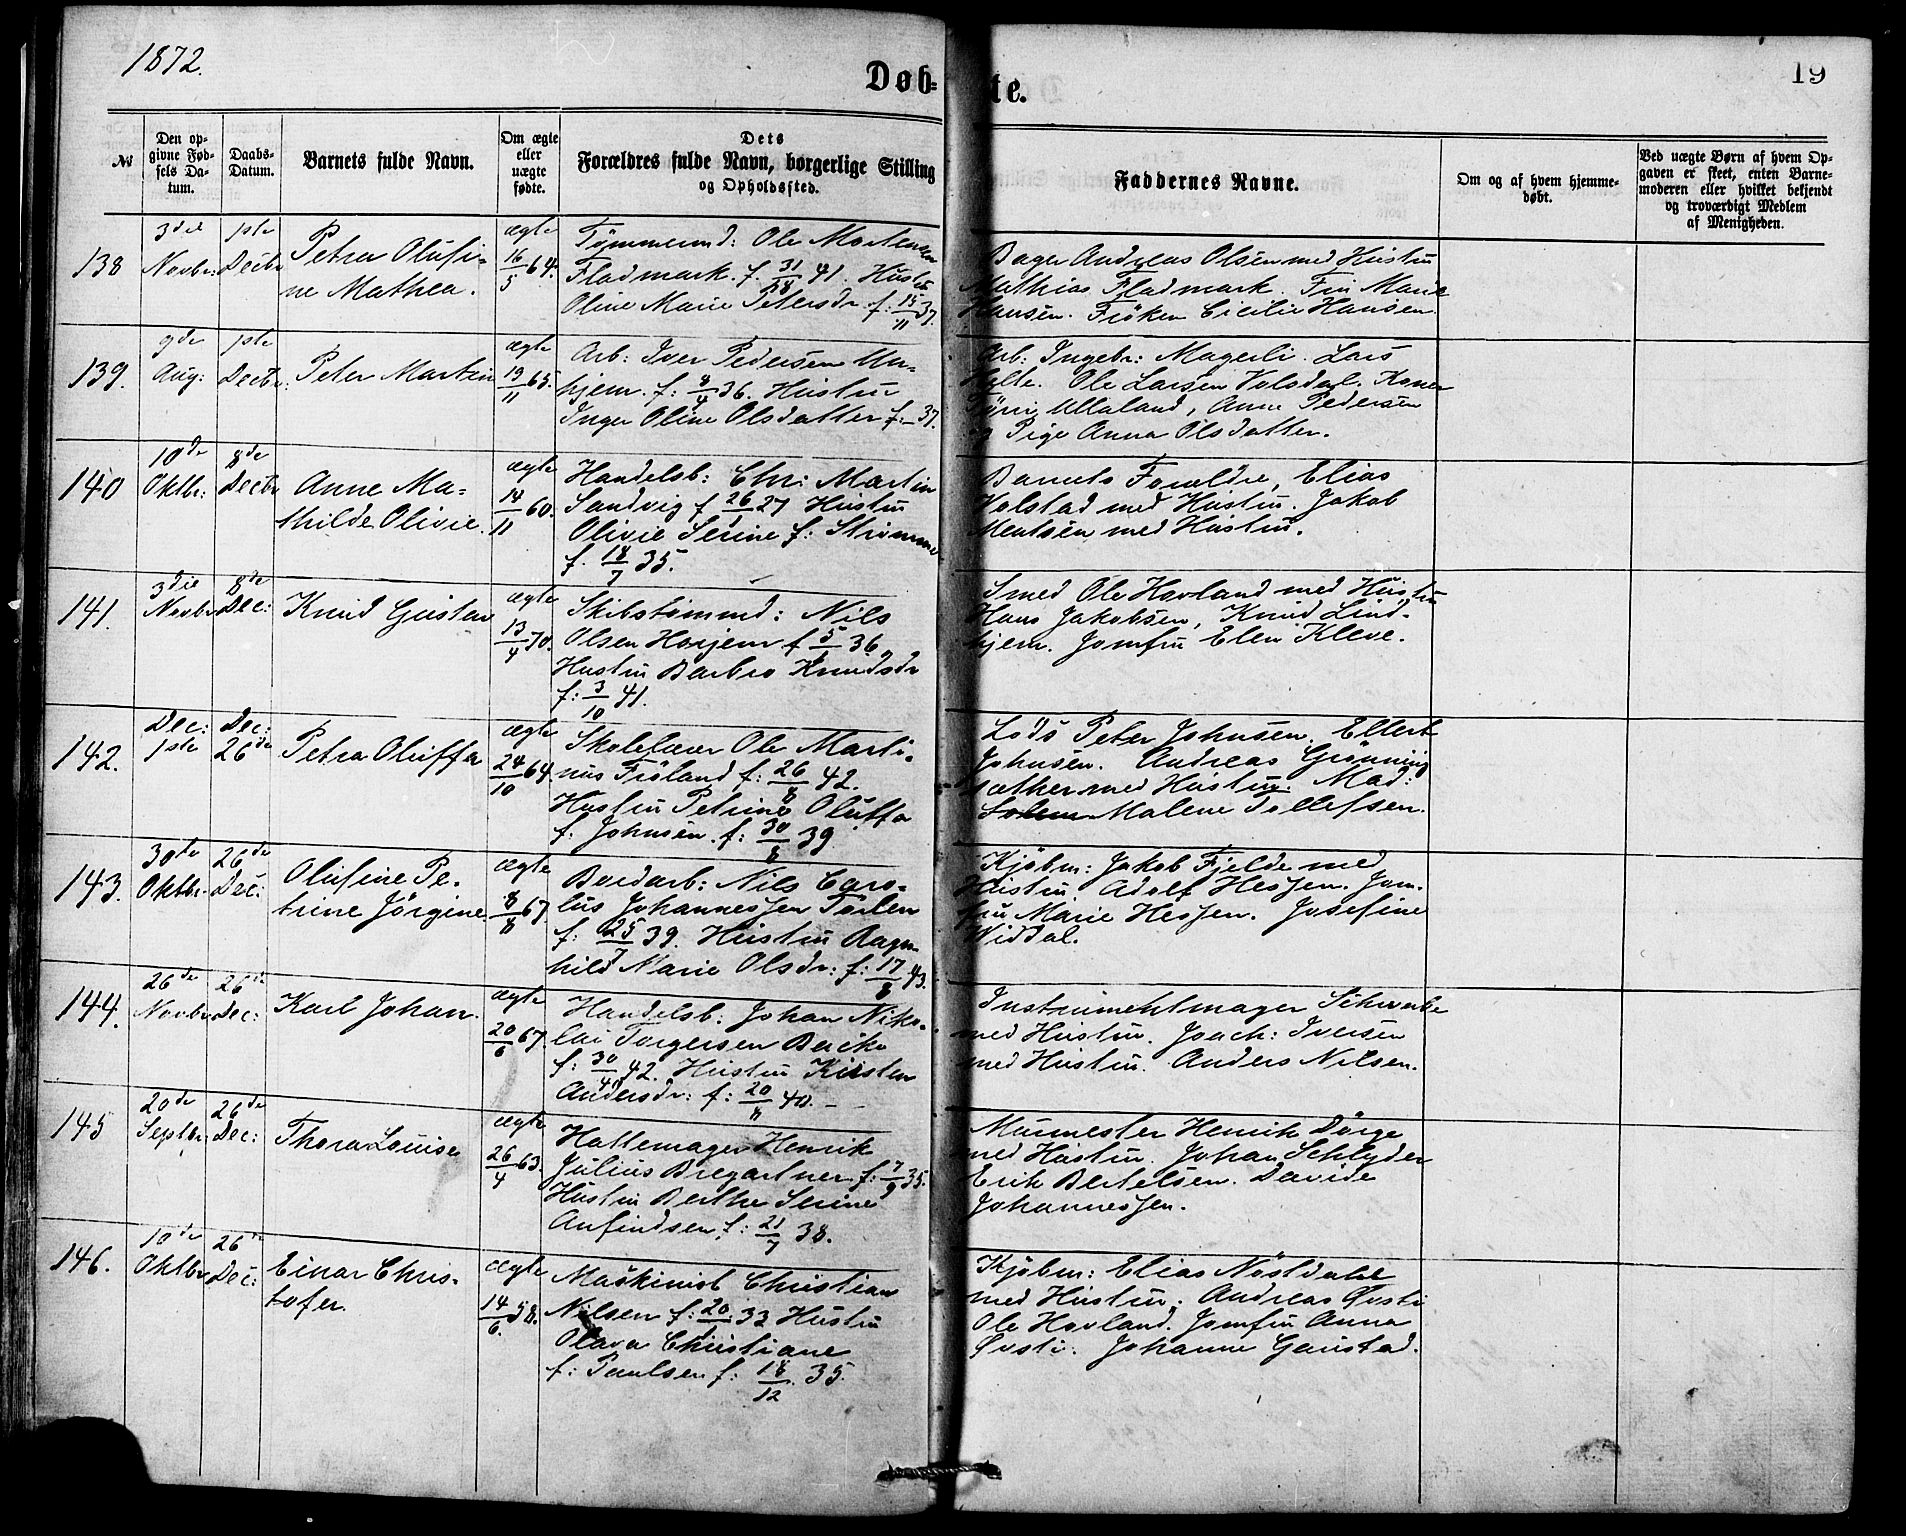 1872.
19
Døb=
te.
№
Den op-
givne Fød-
sels Da-
tum.
Daabs-
Datum.
Barnets fulde Navn.
Om ægte
eller
uægte
fødte.
Dets
Forældres fulde Navn, borgerlige Stilling
og Opholdssted.
Faddernes Navne.
Om og af hvem hjemme-
døbt.
Ved uægte Børn af hvem Op-
gaven er skeet, enten Barne-
moderen eller hvilket bekjendt
og troværdigt Medlem
af Menigheden.
138
3die
Novbr:
1ste
Decbr
Petra Olufi-
ne Mathea.
ægte
16/5 64.
Tømmermd: Ole Mortensen
Fladmark. f. 31/8 41. Hustru
Olene Marie Petersdr f: 15/11 37.
Bager Andreas Olsen med Hustru
Mathias Fladmark. Fru Marie
Hansen. Frøken Cicilie Hansen
139.
9de
Aug:
1ste
Decbr.
Peter Martin
ægte
19/11 65.
Arb: Iver Pedersen Un-
hjem. f: 8/4 36. Hustru
Inger Oline Olsdatter f. 37.
Arb: Ingebr: Magerli. Lars
Hylte. Ole Larsen Volsdal. Koner
Ullaland, Anne Pedersen
og Pige Anna Olsdatter.
140
10de
Oktbr:
8de
Decbr
Anne Ma-
thilde Olivie.
ægte
14/11 60.
Handelsb: Chr: Martin
Sandvig f 26/9 27 Hustru
Olivie Serine f: Strømme
f. 18/7 35.
Barnets Forældre, Elias
Volstad med Hustru. Jakob
Mentsen med Hustru.
141.
3die
Novbr
8de
Dec:
Knud Gustav
ægte
13/4 70.
Skibstømmd: Nils
Olsen Horjem f 5/1 36.
Hustru Barbro Knudsdr
f: 3/10 41.
Smed Ole Hovland med Hustru
Hans Jakobsen, Knud Lind-
hjem. Jomfru Elen Kleve.
142.
Dec:
1ste
Dec:
26de
Petra Oluffa
ægte
24/10 64
Skolelærer Ole Marti-
nus Frøland f: 26/8 42.
Hustru Petrine Oluffa
f. Johnsen. f: 30/8 39
Lods Peter Johnsen. Ellert
Johnsen. Andreas Grønning
sæther med Hustru. Mad:
Malene Tollefsen.
143.
30te
Oktbr.
26de
Dec:
Olufine Pe-
trine Jørgine.
ægte
8/8 67.
Bordarb: Nils Caro-
lus Johannessen Torlen
f: 25/7 39. Hustru Ragn-
hild Marie Olsdr: f: 17/8 43.
Kjøbm: Jakob Fjelde med
Hustru Adolf Hessen. Jom-
fru Marie Hessen. Josefine
Widdal.
144.
26de
Novbr
26de
Dec:
Karl Johan.
ægte
20/6 67.
Handelsb: Johan Niko-
lai Torgersen Bache
f: 30/10 42. Hustru Kirsten
Andersdr: f: 20/8 40.
Instrumentmager Schwabe
med Hustru. Joach: Iversen
med Hustru. Anders Nilsen.
145
20de
Septbr:
26de
Dec:
Thora Louise
ægte
26/4 63.
Hattemager Henrik
Julius Bregartner f: 7/9 35.
Hustru Berthe Serine
Anfindsen, f: 21/7 38.
Murmester Henrik Dørge
med Hustru. Johan Schlyder
Erik Bertelsen. Davide
Johannessen.
146.
10de
Oktbr
26de
Dec:
Einar Chris-
tofer.
ægte
14/6. 58.
Maskinist Christian
Nilsen f: 20/1 33 Hustru
Olava Christiane
f: Paulsen f: 18/12 35.
Kjøbm: Elias Nøstdahl
med Hustru. Andreas Øvsti
Ole Hovland. Jomfru Anna
Øvsti. Johanne Gaustad.